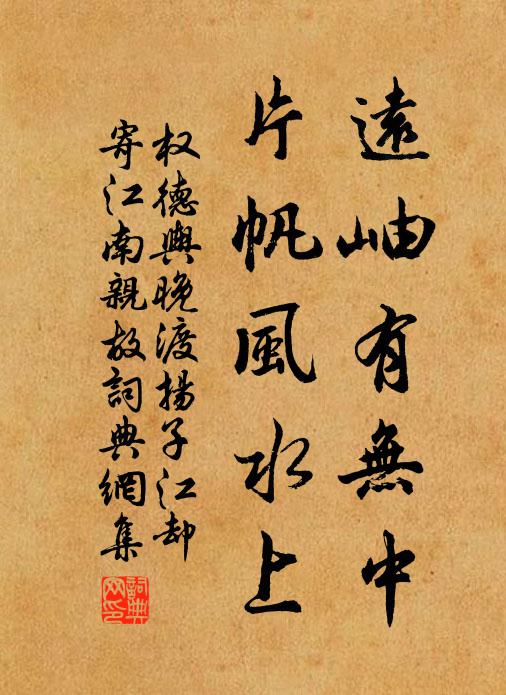 遠岫有無中
片帆風水上
权德輿晚渡揚子江却
寄江南親故詞典網集
詞典
网印